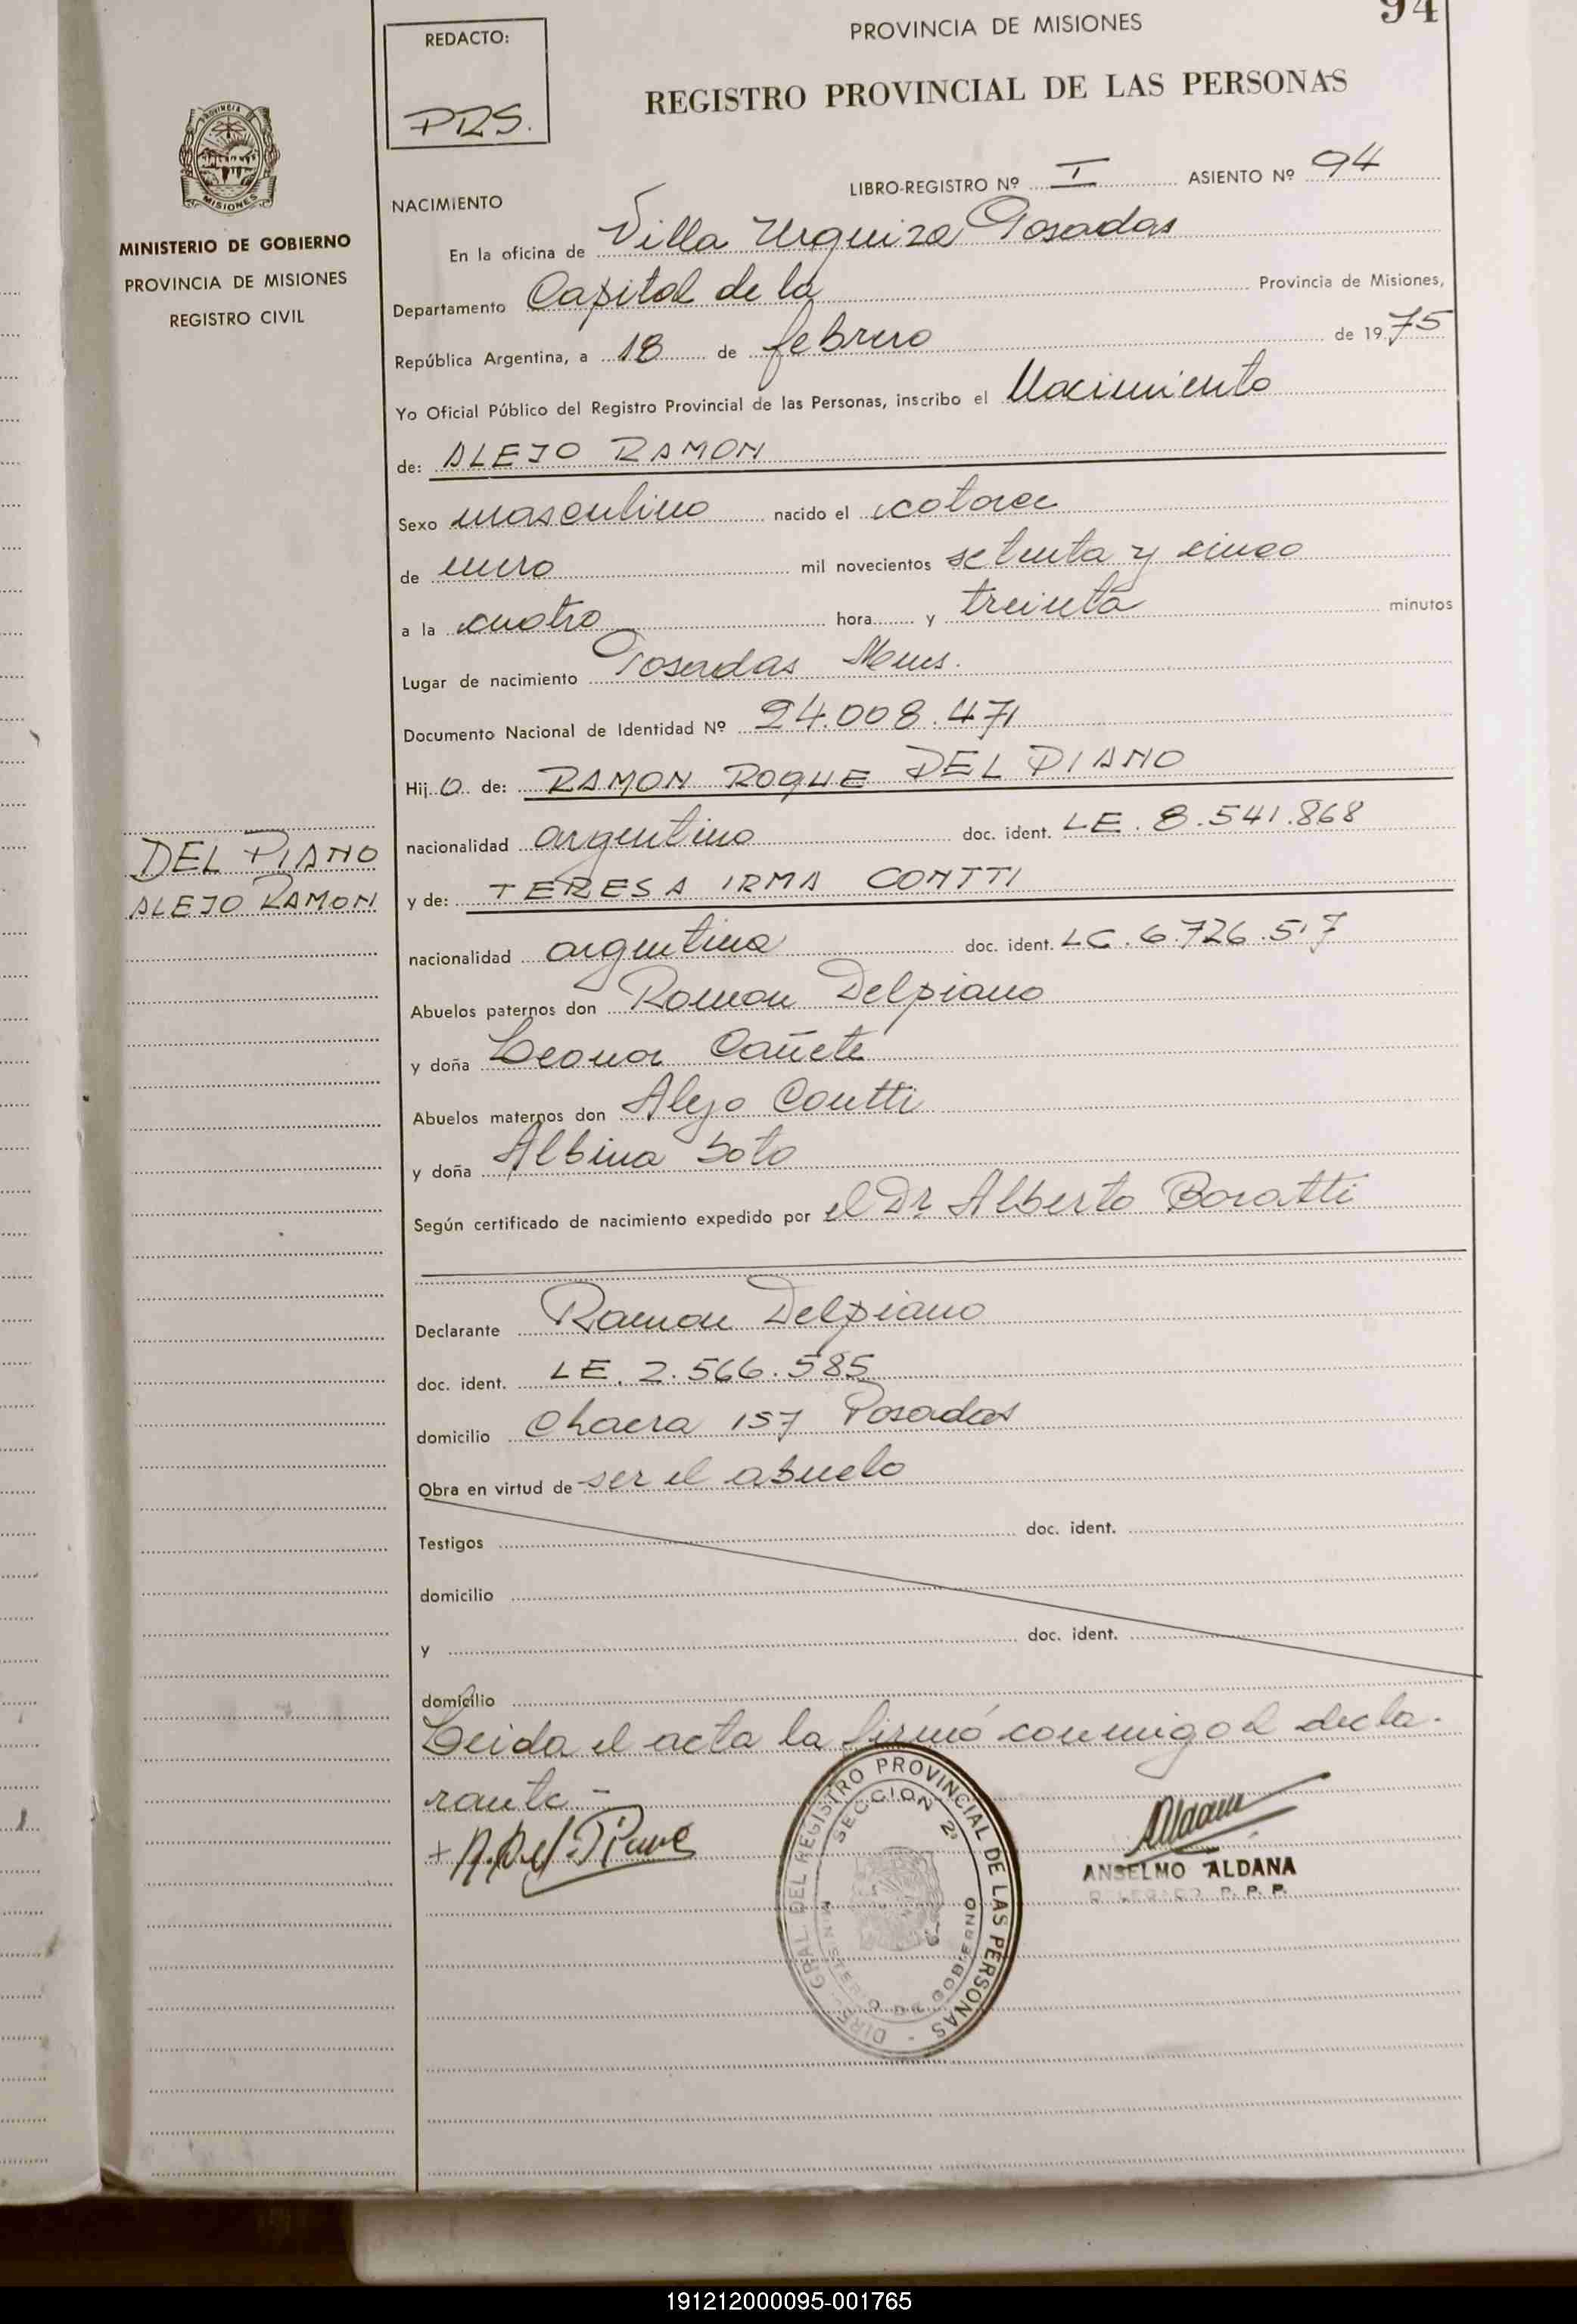 94
REDACTO:
PROVINCIA DE MISIONES
PRS.
REGISTRO PROVINCIAL DE LAS PERSONAS
PROVINCIA DE
MISIONES
MINISTERIO DE GOBIERNO
PROVINCIA DE MISIONES
REGISTRO CIVIL
LIBRO-REGISTRO Nº I ASIENTO Nº 94
NACIMIENTO
En la oficina de Villa Urquiza Posadas
Departamento Capital de la Provincia de Misiones,
República Argentina, a 18 de febrero de 19 75
Yo Oficial Público del Registro Provincial de las Personas, inscribo el Nacimiento
de: ALEJO RAMON
Sexo masculino nacido el catorce
de enero mil novecientos setenta y cinco
a la cuatro hora y treinta minutos
Lugar de nacimiento Posadas
Documento Nacional de Identidad Nº 24.008.471
Hij o de: RAMON ROQUE DEL PIANO
nacionalidad argentino doc. ident. LE. 8.541.868
DEL PIANO
ALEJO RAMON
y de: TERESA IRMA CONTTI
nacionalidad argentina doc. ident. LC. 6.726.517
Abuelos paternos don Ramon Delpiano
y doña Leonor Cañete
Abuelos maternos don Alejo Contti
y doña Albina Soto
Según certificado de nacimiento expedido por el Dr Alberto Boratti
Declarante Ramon Delpiano
doc. ident. LE. 2.566.585
domicilio Chacra 157 Posadas
Obra en virtud de ser el abuelo
Testigos doc. ident.
domicilio
y doc. ident.
domicilio
Leida el acta la firmó conmigo el decla-
rante -
DIREC. GRAL. DEL REGISTRO PROVINCIAL DE LAS PERSONAS
SECCION 2ª
MINISTERIO DE GOBIERNO
Aldana
ANSELMO ALDANA
DELEGADO R. P. P.
191212000095-001765